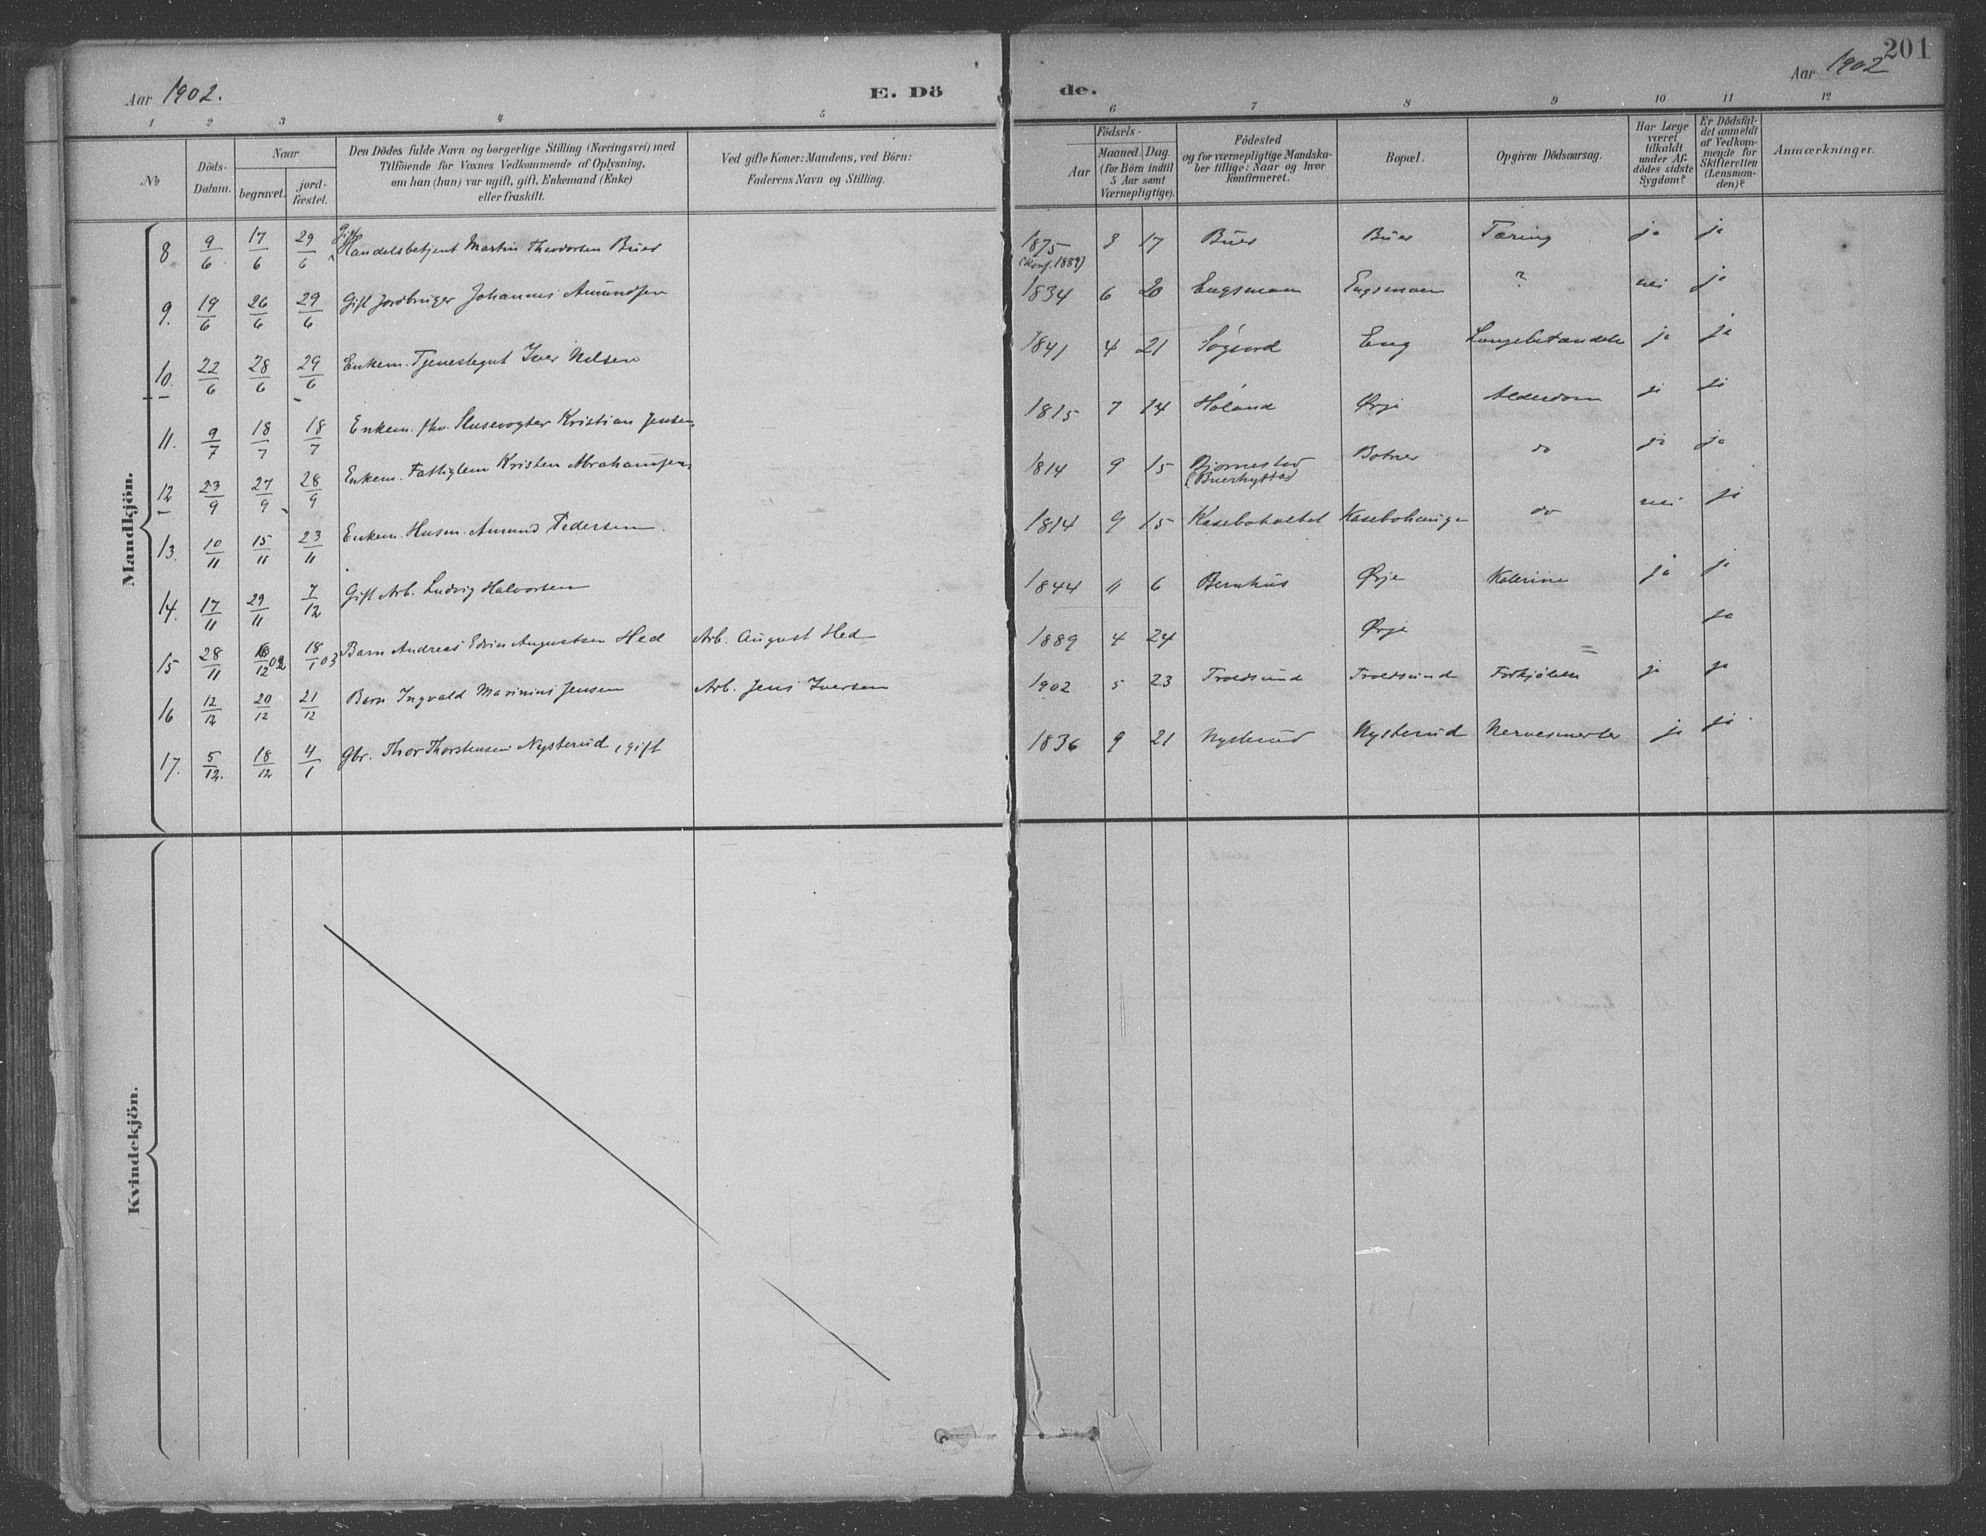 201
Aar 1902. E. Dö de. Aar 1902
1 2 3 4 5 6 7 8 9 10 11 12
№
Döds-Datum.
Naar
begravet. jord-fæstet.
Den Dödes fulde Navn og borgerlige Stilling (Næringsvei) med
Tilföiende for Voxnes Vedkommende af Oplysning,
om han (hun) var ugift, gift, Enkemand (Enke)
eller fraskilt.
Ved gifte Koner: Mandens, ved Börn:
Faderens Navn og Stilling.
Födsels-
Aar Maaned. Dag.
(for Börn indtil
5 Aar samt
Værnepligtige).
Födested
og for værnepligtige Mandska-
ber tillige: Naar og hvor
konfirmeret.
Bopæl.
Opgiven Dödsaarsag.
Har Læge
været
tilkaldt
under Af-
dödes sidste
Sygdom?
Er Dödsfal-
det anmeldt
af Vedkom-
mende for
Skifteretten
(Lensman-
den)?
Anmærkninger.
Mandkjön.
8 9/6 17/6 29/6 Gift Handelsbetjent Martin Theodorsen Buer 1875 (Konf. 1889) 3 17 Buer Buer Tæring ja ja
9. 19/6 26/6 29/6 Gift Jordbruger Johannes Amundsen 1834 6 20 Engsmoen Engsmoen ? nei ja
10. 22/6 28/6 29/6 Enkem. Tjenestegut Iver Nilsen 1841 4 21 Eng Lungebetændelse ja ja
11. 9/7 18/7 18/7 Enkem. fhv. Kristian Jensen 1815 7 14 Høland Ørje Alderdom ja ja
12 23/9 27/9 28/9 Enkem. Fattiglem Kristen Abrahamsen 1814 9 15 Bjørnestad Botner do ja ja
13. 10/11 15/11 23/11 Enkem. Husm. Amund Pedersen 1814 9 15 Kasebohaugen do nei ja
14. 17/11 29/11 7/12 Gift Arb. Ludvig Halvorsen 1844 11 6 Ørje ja ja
15 28/11 /12 02 18/1 03 Barn Andreas Edvin Augustsen Hed Arb. August Hed 1889 4 24 Ørje = ja
16 12/12 20/12 21/12 Barn Ingvald Marinius Jensen Arb. Jens Iversen 1902 5 23 Troldsund Troldsund Forkjølelse ja ja
17. 5/12. 18/12 4/1 Gbr. Thor Thorstensen Nysterud, gift 1836 9 21 Nysterud Nysterud ja ja
Kvindekjön.